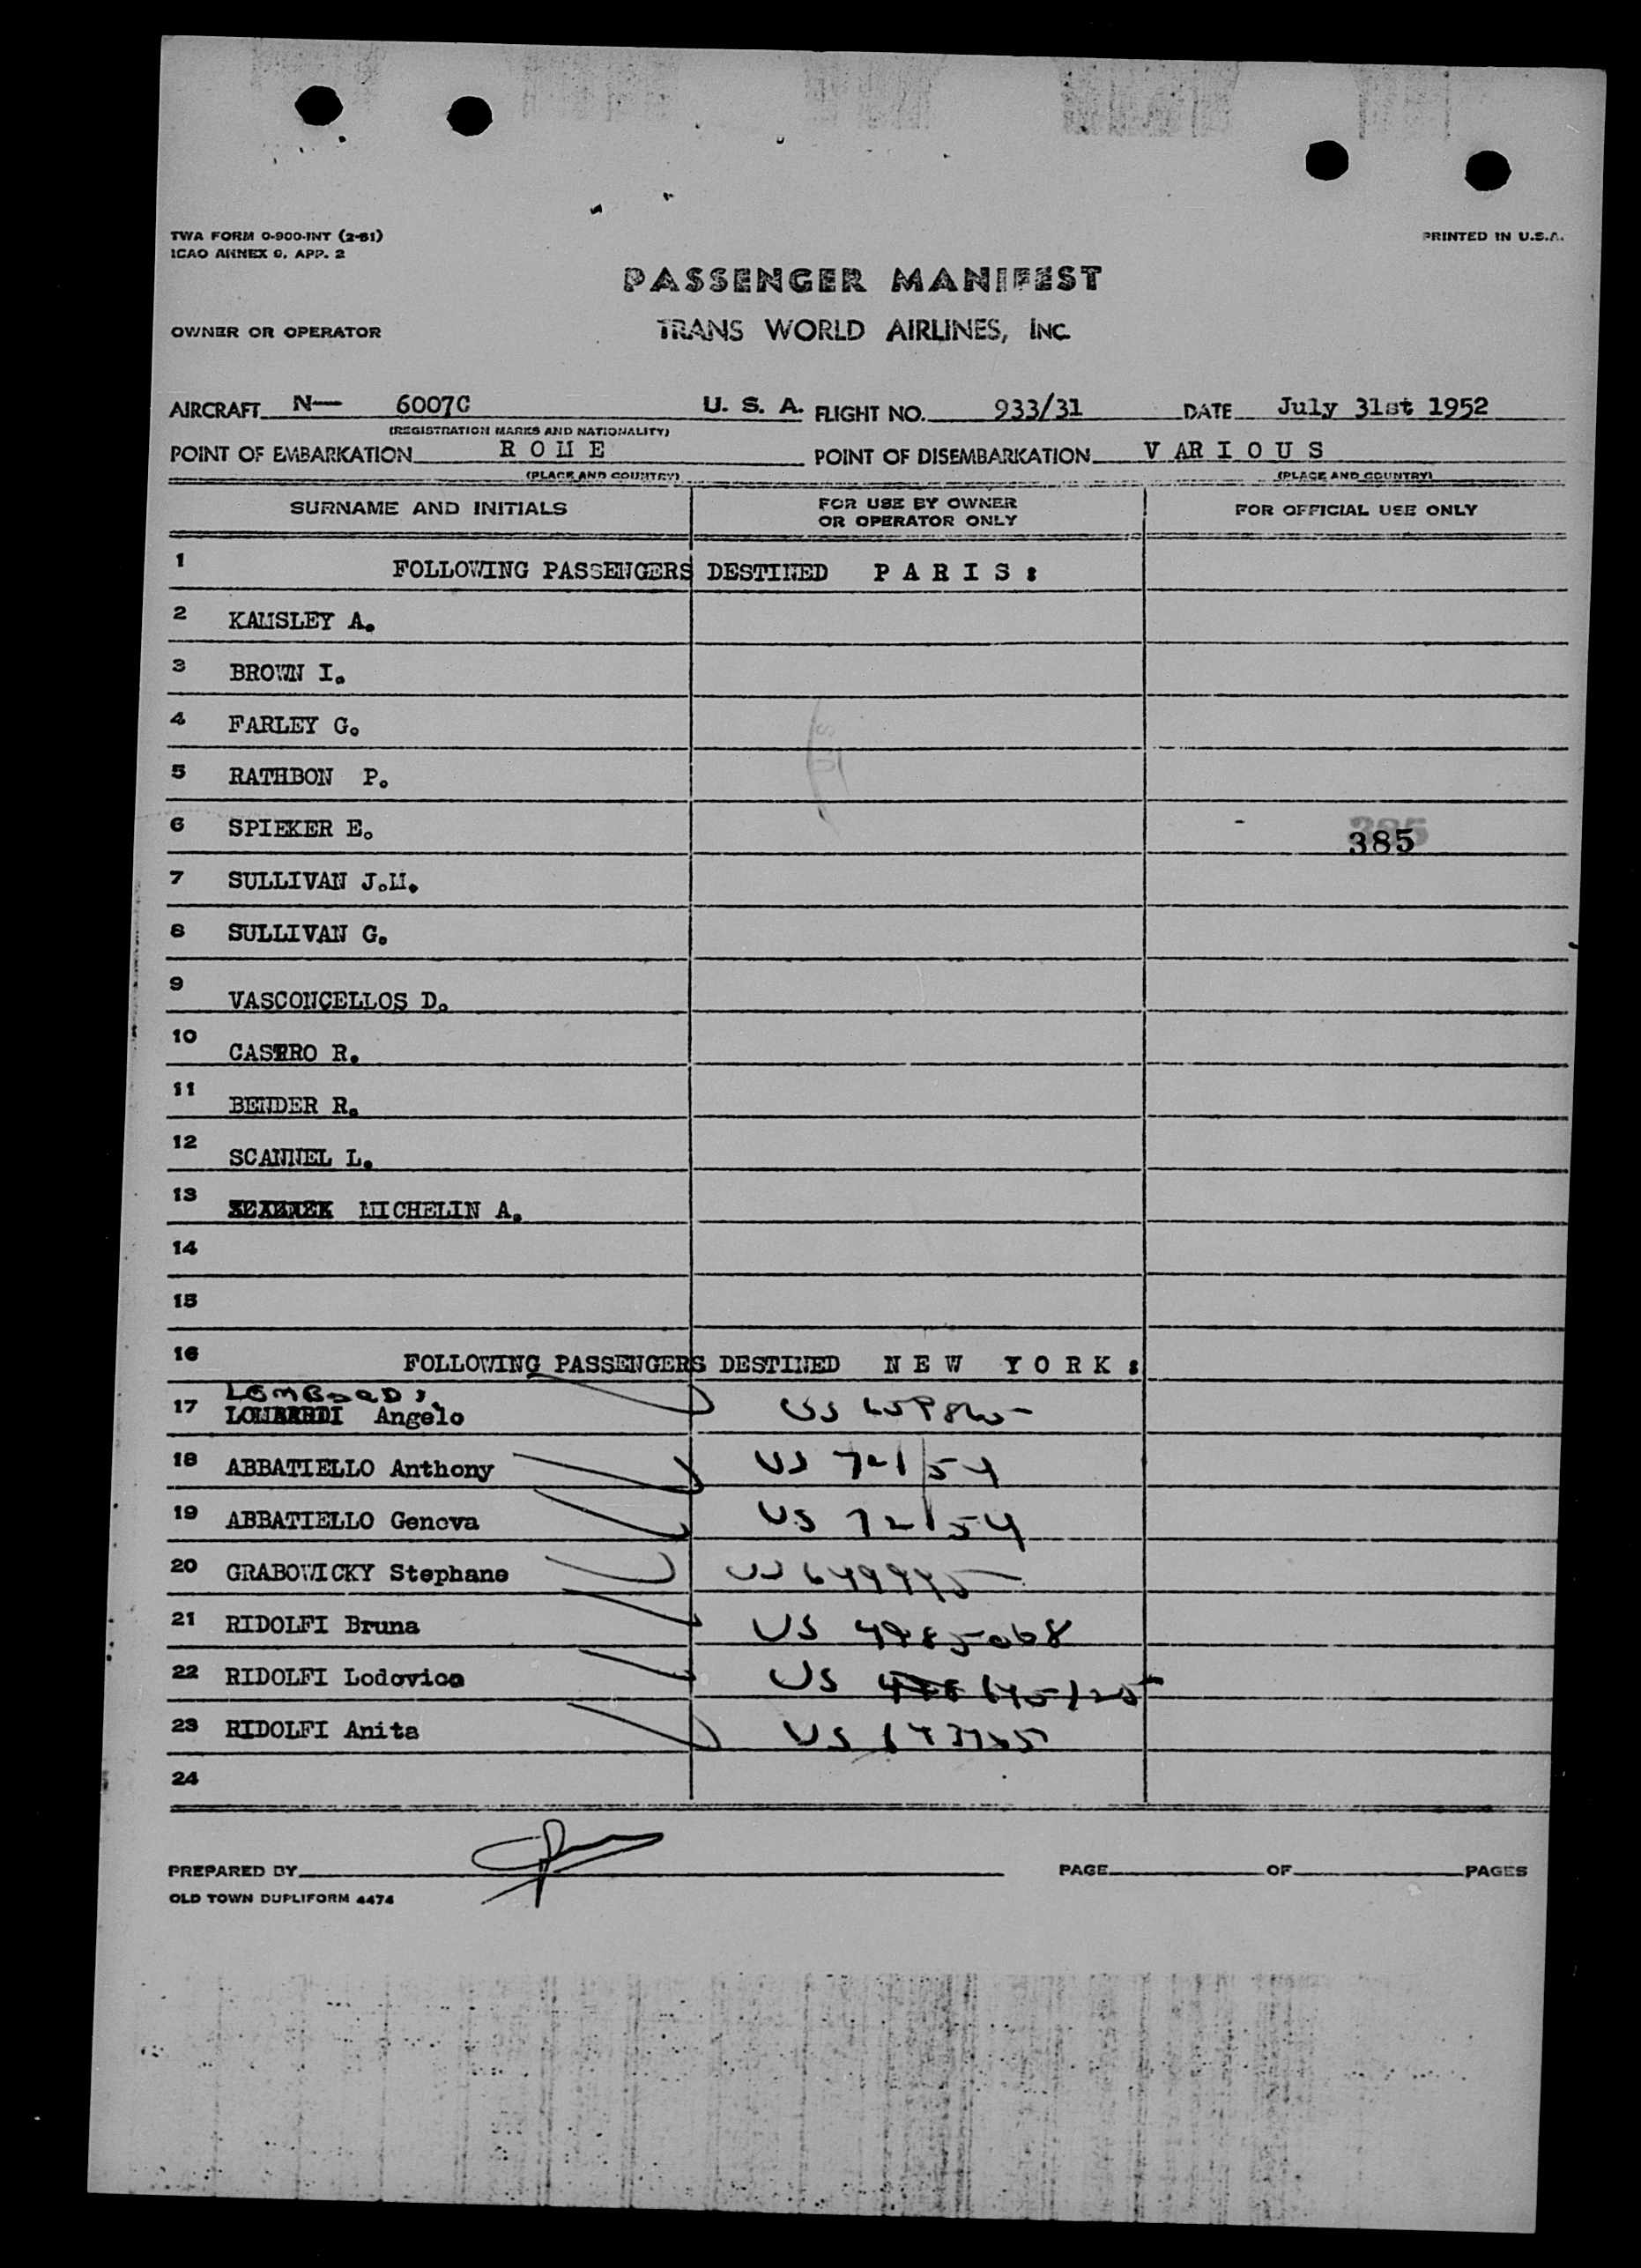 TWA FORM O-900-INT (2-51)
ICAO ANNEX 9, APP. 2
PRINTED IN U.S.A.
PASSENGER MANIFEST
OWNER OR OPERATOR TRANS WORLD AIRLINES, INC.
AIRCRAFT N— 6007C U. S. A. FLIGHT NO. 933/31 DATE July 31st 1952
(REGISTRATION MARKS AND NATIONALITY)
POINT OF EMBARKATION R O M E POINT OF DISEMBARKATION V AR I O U S
(PLACE AND COUNTRY) (PLACE AND COUNTRY)
SURNAME AND INITIALS FOR USE BY OWNER OR OPERATOR ONLY FOR OFFICIAL USE ONLY
1 FOLLOWING PASSENGERS DESTINED P A R I S :
2 KAMSLEY A.
3 BROWN I.
4 FARLEY G.
5 RATHBON P.
6 SPIEKER E. 385
7 SULLIVAN J.M.
8 SULLIVAN G.
9 VASCONCELLOS D.
10 CASTRO R.
11 BENDER R.
12 SCANNEL L.
13 MICHELIN A.
14
15
16 FOLLOWING PASSENGERS DESTINED N E W Y O R K :
17 LOMBARDI Angelo US
18 ABBATIELLO Anthony US 721/54
19 ABBATIELLO Genova US 721/54
20 GRABOWICKY Stephane US
21 RIDOLFI Bruna US 4985068
22 RIDOLFI Lodovico US
23 RIDOLFI Anita US
24
PREPARED BY PAGE OF PAGES
OLD TOWN DUPLIFORM 4474